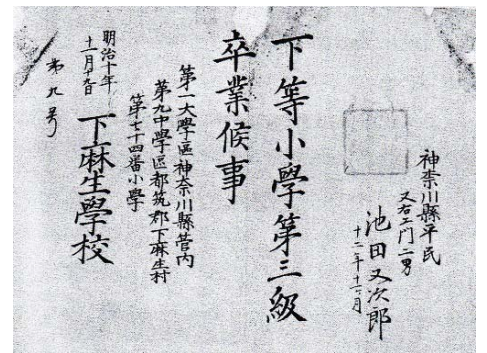 神奈川縣平民
又右エ門二男
池田又次郎
十二年十一ヶ月
下等小學第三級
卒業候事
第一大學區神奈川縣管内
第九中學區都筑郡下麻生村
第七十四番小學
下麻生學校
明治十年
十一月十九日
第九号